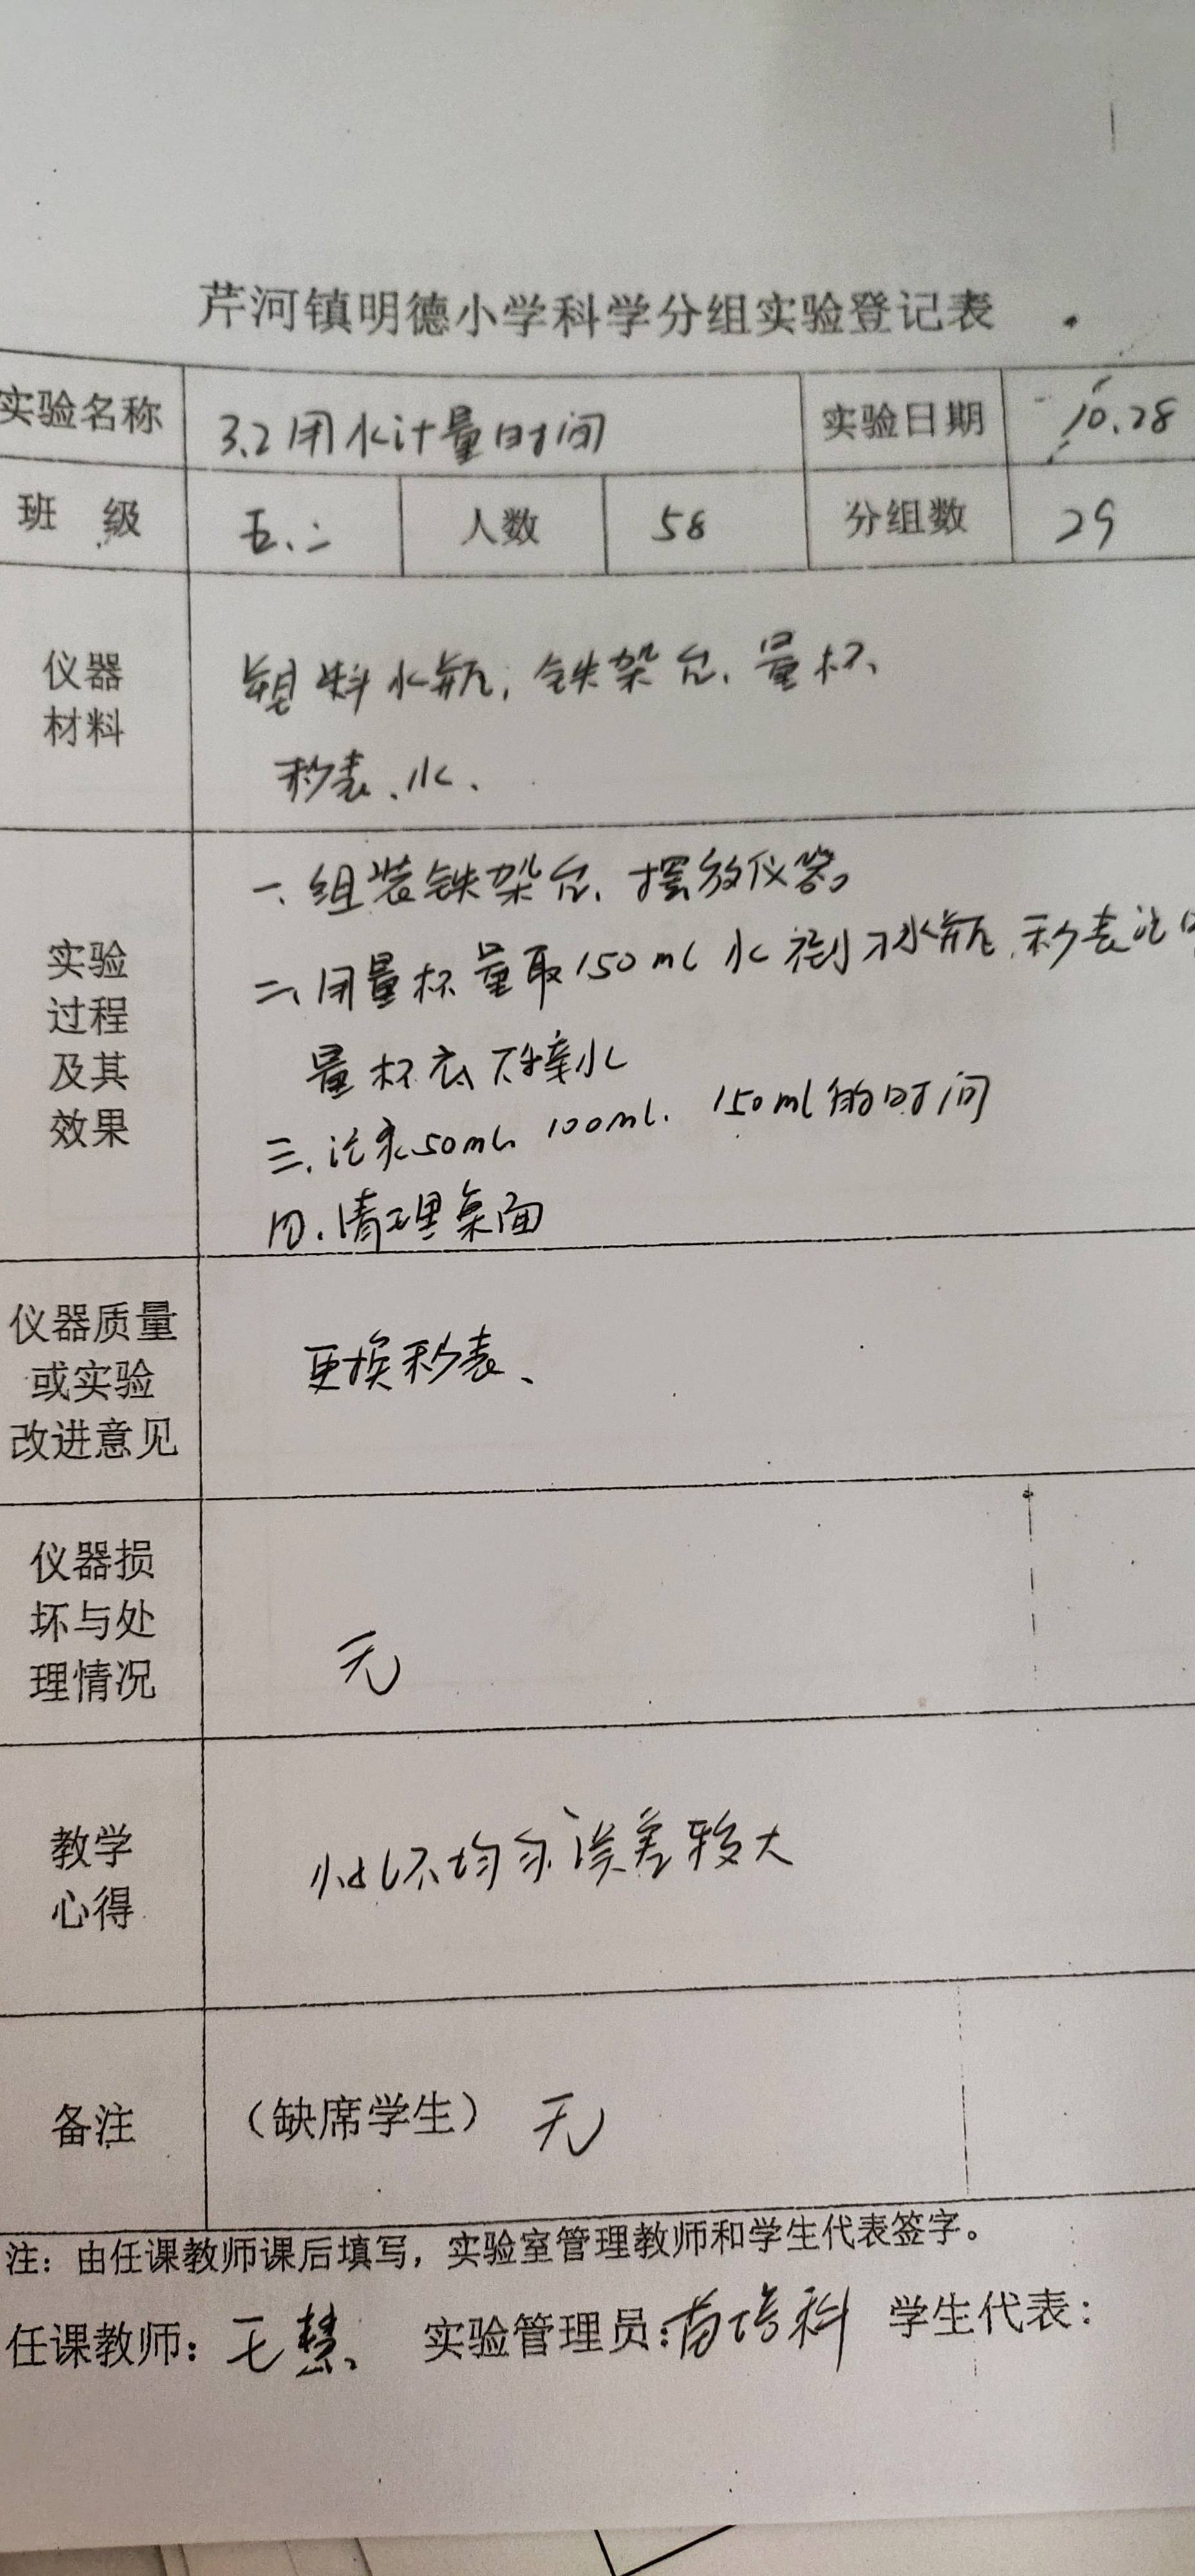 芹河镇明德小学科学分组实验登记表
实验名称 3.2用水计量时间 实验日期 10.28
班级 五.二 人数 58 分组数 29
仪器材料 塑料水瓶,铁架台、量杯、
秒表、水、
实验过程及其效果 一、组装铁架台、摆放仪器。
二、用量杯量取150ml水倒水瓶,秒表记
量杯在下接水
三、记录50ml、100ml、150ml的时间
四、清理桌面
仪器质量或实验改进意见 更换秒表、
仪器损坏与处理情况 无
教学心得 不均匀误差较大
备注 (缺席学生) 无
注:由任课教师课后填写,实验室管理教师和学生代表签字。
任课教师:王慧 实验管理员:苗培科 学生代表: